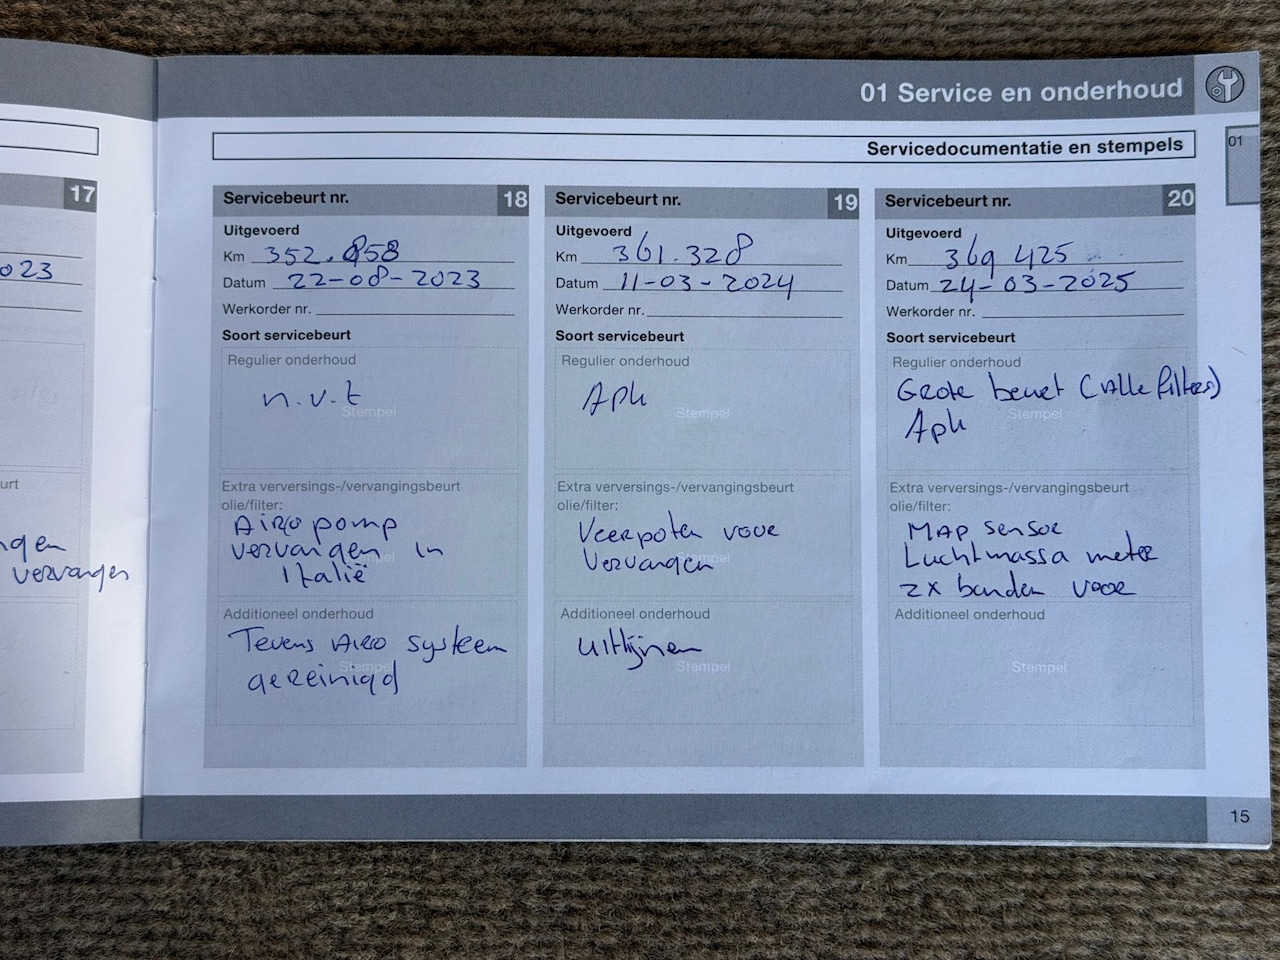 01 Service en onderhoud
01
Servicedocumentatie en stempels
17
023
urt
ngen
vervangen
Servicebeurt nr. 18
Uitgevoerd
Km 352.858
Datum 22-08-2023
Werkorder nr.
Soort servicebeurt
Regulier onderhoud
n.v.t
Stempel
Extra verversings-/vervangingsbeurt
olie/filter:
Airco pomp
vervangen in
Italië
Additioneel onderhoud
Tevens Airco systeem
Stempel
gereinigd
Servicebeurt nr. 19
Uitgevoerd
Km 361.328
Datum 11-03-2024
Werkorder nr.
Soort servicebeurt
Regulier onderhoud
Apk
Stempel
Extra verversings-/vervangingsbeurt
olie/filter:
Veerpoten voor
Vervangen
Additioneel onderhoud
uitlijnen
Stempel
Servicebeurt nr. 20
Uitgevoerd
Km 369 425
Datum 24-03-2025
Werkorder nr.
Soort servicebeurt
Regulier onderhoud
Grote beurt (Alle filters)
Stempel
Apk
Extra verversings-/vervangingsbeurt
olie/filter:
MAP sensor
Luchtmassa meter
2x banden voor
Additioneel onderhoud
Stempel
15